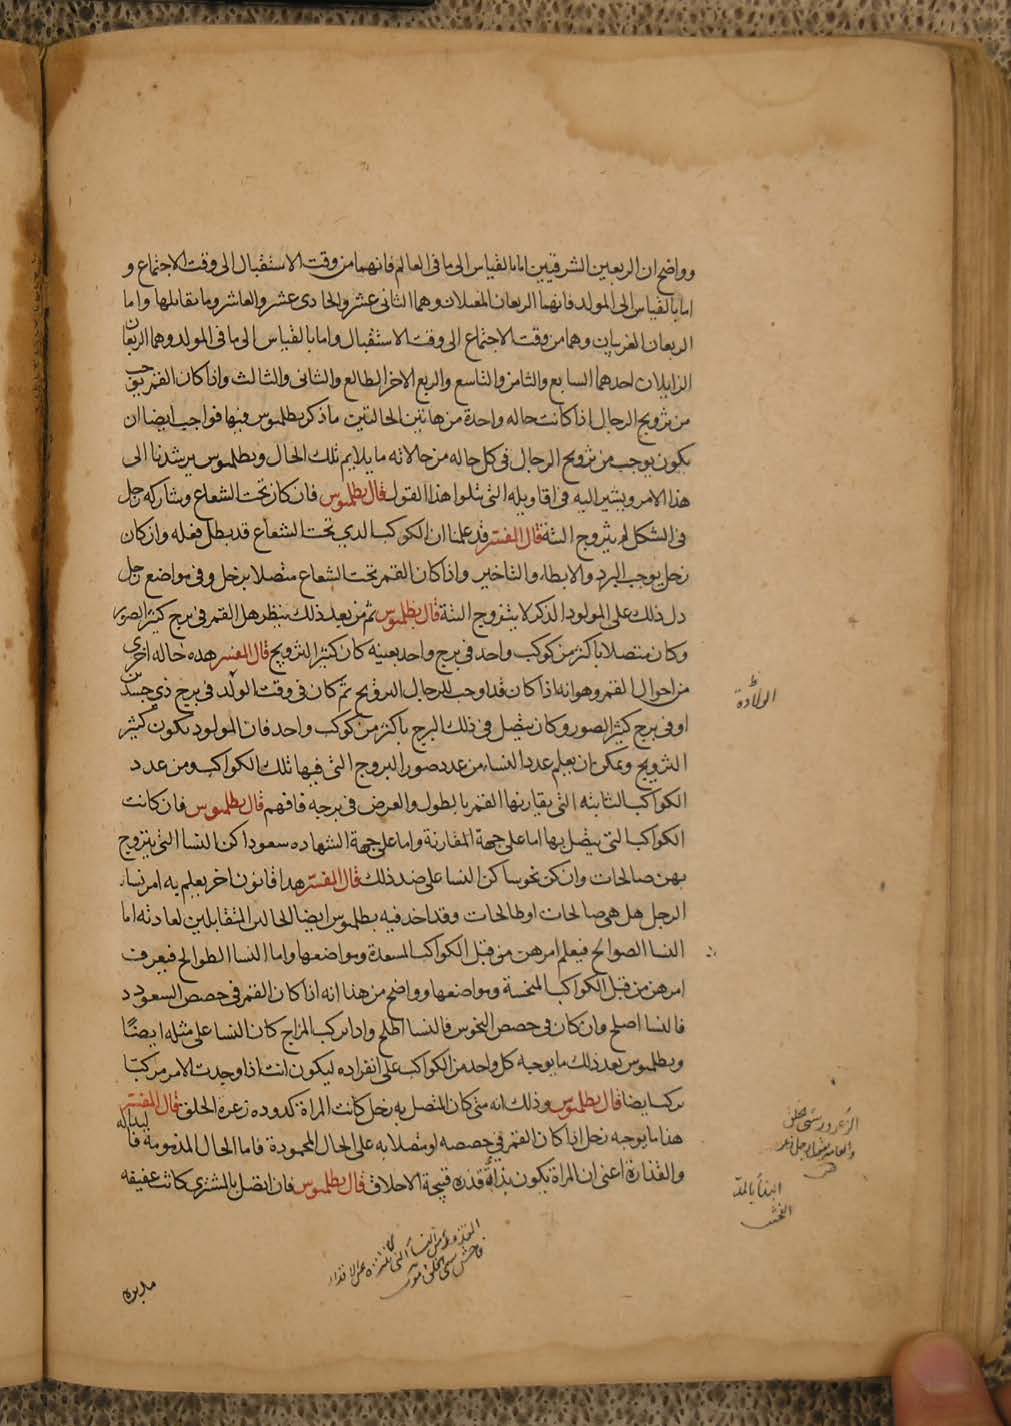 وواضح ان الربعين الشرقيين اما بالقياس الى ما فى العالم فانهما من وقت الاستقبال الى وقت الاجتماع و
اما بالقياس الى المولد فانهما الربعان المقبلان وهما الثانى عشر والحادى عشر والعاشر وما يقابلها واما
الربعان الغربيان وهما من وقت الاجتماع الى وقت الاستقبال واما بالقياس الى ما فى المولد وهما الربعان
الزايلان احدهما السابع والثامن والتاسع والربع الاخر الطالع والثانى والثالث واذا كان القمر يوجب
من تزويج الرجال اذا كانت حاله واحدة من هاتين الحالتين ما ذكر بطلميوس فيها فواجب ايضا ان
يكون يوجب من تزويج الرجال فى كل حاله من حالاته ما يلايم تلك الحال وبطلميوس يرشدنا الى
هذا الامر ويشير اليه فى اقاويله التى تتلوا هذا القول قال بطلميوس فان كان تحت الشعاع وشاركه زحل
فى الشكل لم يتزوج البتة قال المفسر قد علمنا ان الكوكب الذي تحت الشعاع قد بطل فعله وان كان
زحل يوجب البرد والابطاء والتاخير واذا كان القمر تحت الشعاع متصلا بزحل وفى مواضع زحل
دل ذلك على المولود الذكر لا يتزوج البتة قال بطلميوس ثم من بعد ذلك ينظر هل القمر فى برج كثير الصور
وكان متصلا باكثر من كوكب واحد فى برج واحد بعينه كان كثير التزويج قال المفسر هذه حاله اخرى
من احوال القمر وهو انه اذا كان قد اوجب للرجال التزويج ثم كان فى وقت الولد فى برج ذي جسدين
او فى برج كثير الصور وكان يتصل فى ذلك البرج باكثر من كوكب واحد فان المولود يكون كثير
التزويج ويمكن ان يعلم عدد النساء من عدد صور البروج التى فيها تلك الكواكب ومن عدد
الكواكب الثابته التى يقارنها القمر بالطول والعرض فى برجه فافهم قال بطلميوس فان كانت
الكواكب التى يتصل بها اما على جهة المقارنة واما على جهة الشهاده سعودا كن النسا التى يتزوج
بهن صالحات وان كن نحوسا كن النسا على ضد ذلك قال المفسر هذا قانون اخر يعلم به امر نساء
الرجل هل هى صالحات او طالحات وقد اخذ فيه بطلميوس ايضا الحالين المتقابلين لعادته اما
النسا الصوالح فيعلم امرهن من قبل الكواكب المسعدة ومواضعها واما النسا الطوالح فيعرف
امرهن من قبل الكواكب المنحسة ومواضعها وواضح من هذا انه اذا كان القمر فى حصص السعود
فالنسا اصلح وان كان فى حصص النحوس فالنسا اطلح واذا تركب المزاج كان النسا على مثله ايضا
وبطلميوس بعد ذلك ما يوجبه كل واحد من الكواكب على انفراده ليكون انت اذا وجدت الامر مركبا
تركب ايضا قال بطلميوس وذلك انه متى كان المتصل به زحل كانت المراة كدوده زعرة الخلق قال المفسر
هذا ما يوجبه زحل اذا كان القمر فى حصصه او متصلا به على الحال المحمودة فاما الحال المذمومة فا
والقذارة اعنى ان المراة يكون بذاة قذره قبيحة الاخلاق قال بطلميوس فان اتصل بالمشتري كانت عفيفه
الولادة
البذا بالمد
الفحش